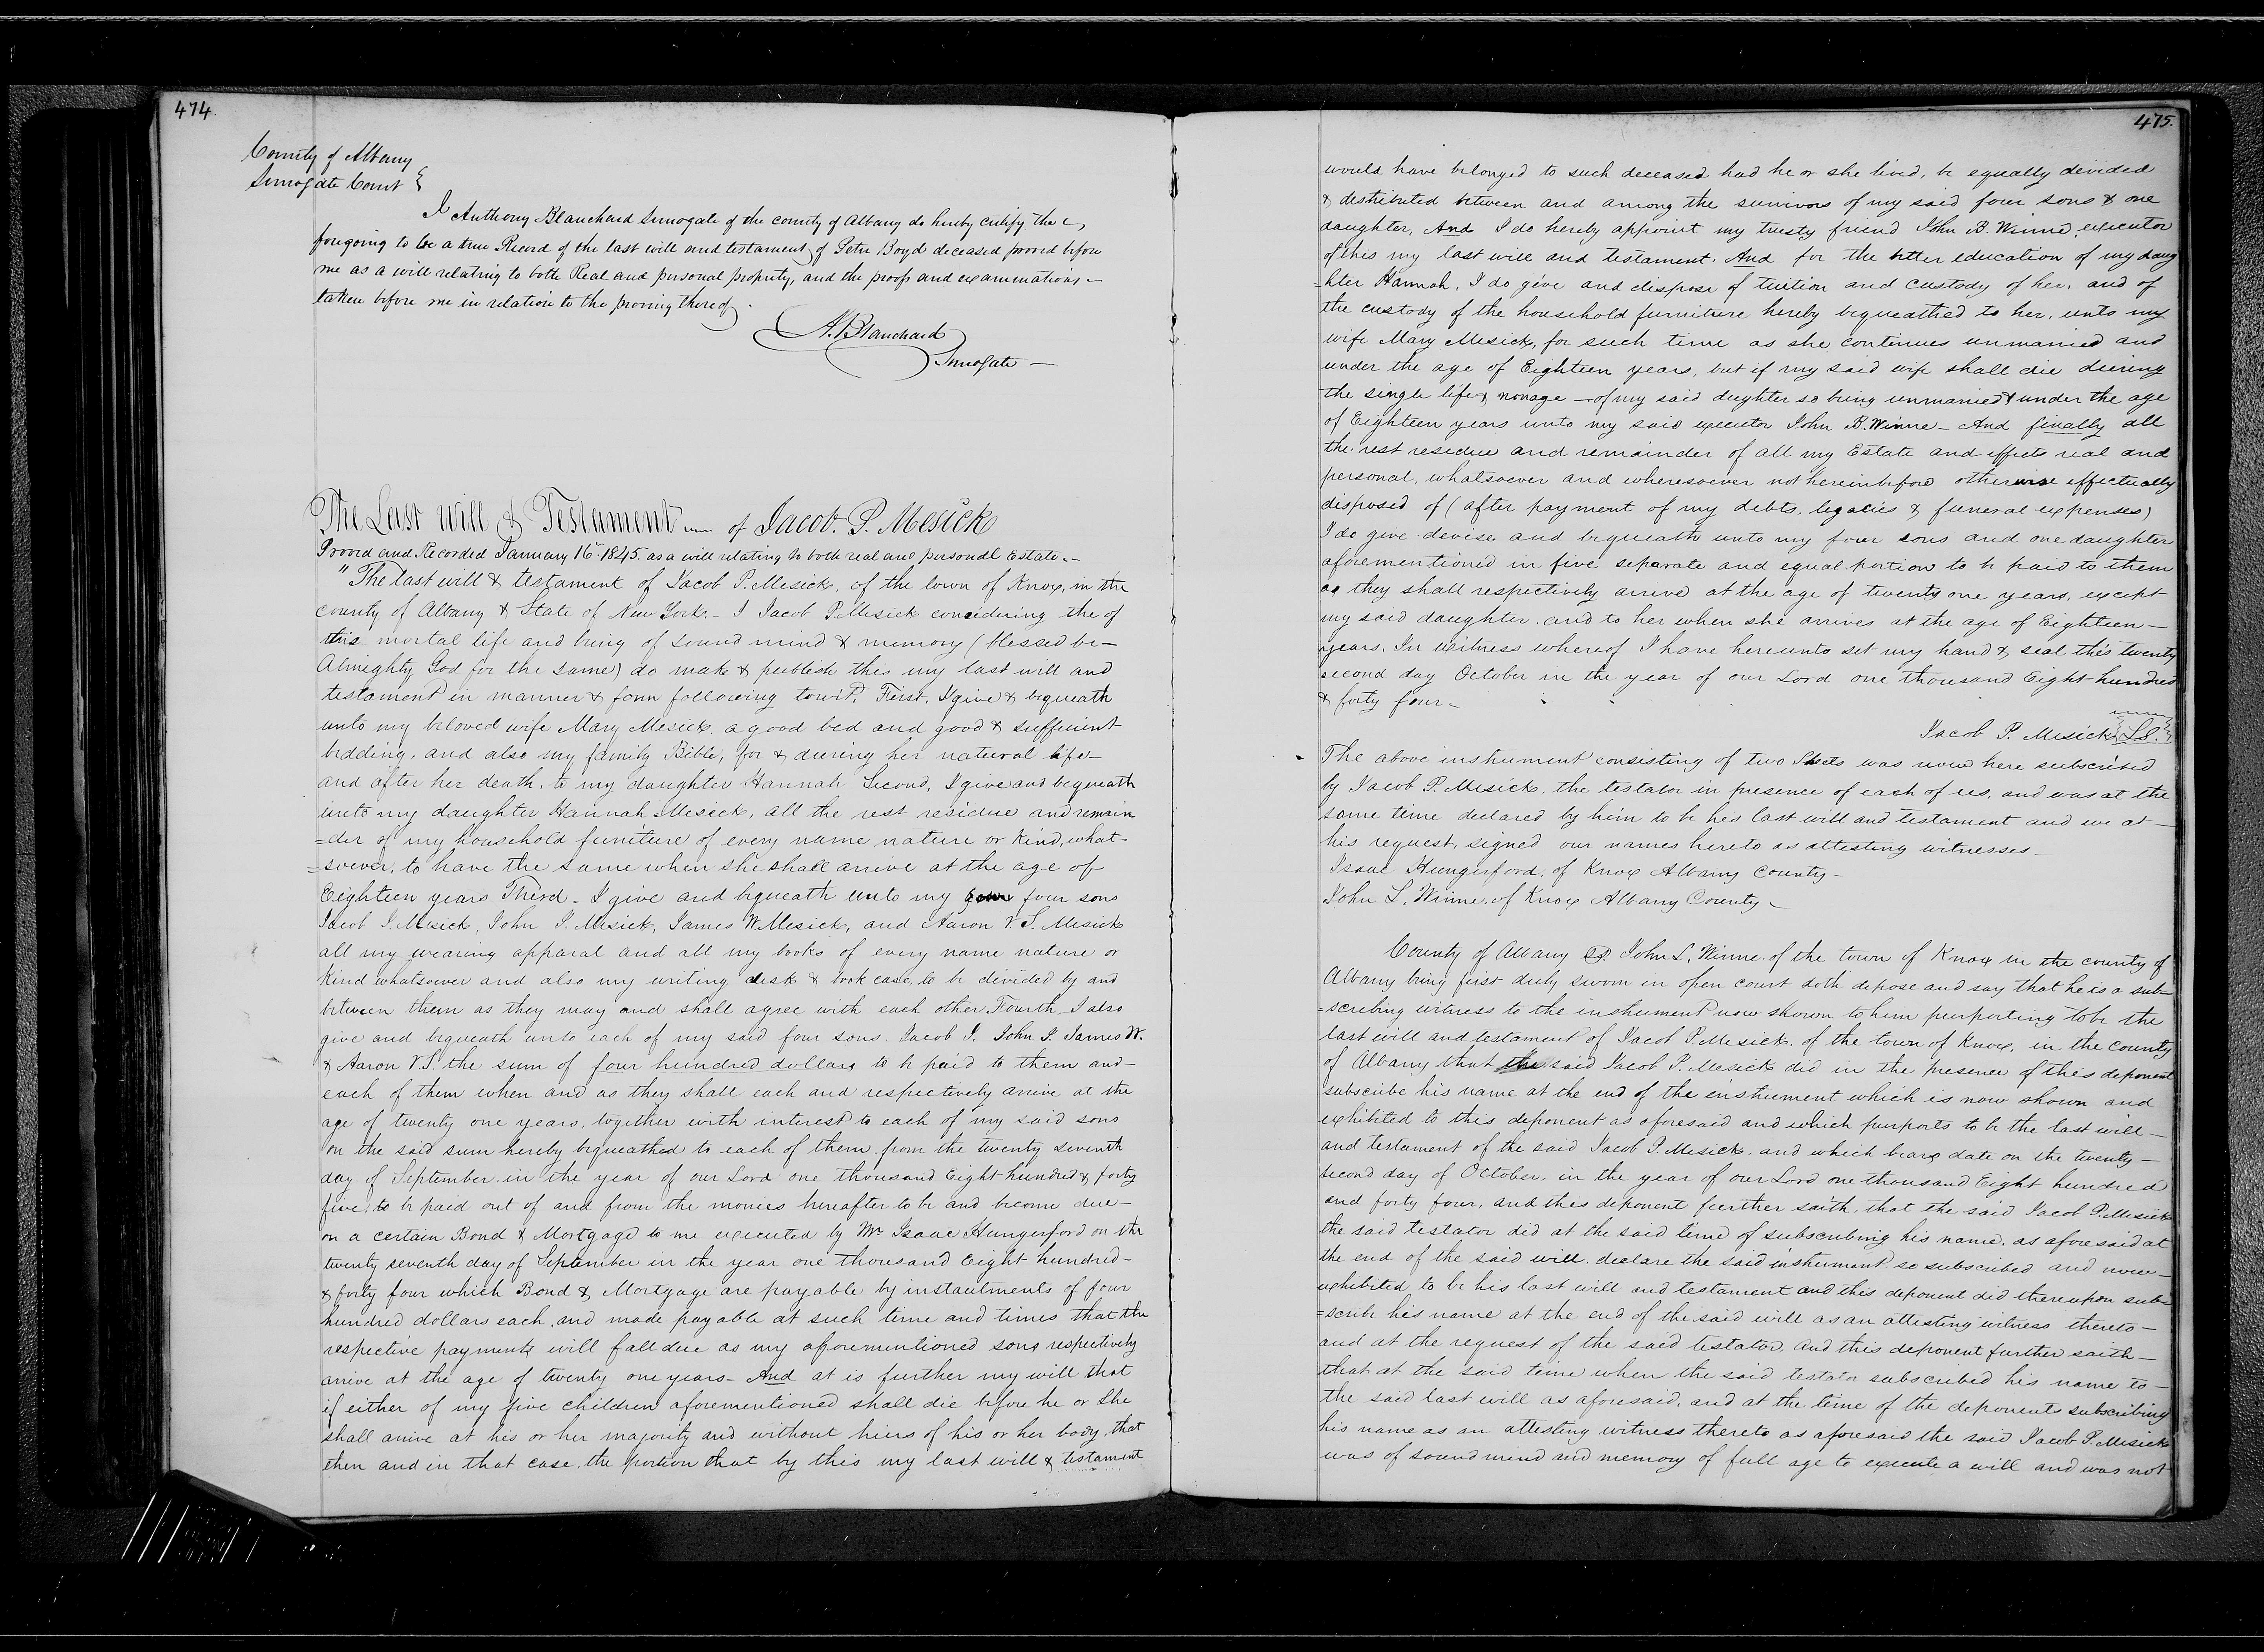 474.
County of Albany
Surrogate Court
I Anthony Blanchard Surrogate of the county of Albany do hereby certify the
foregoing to be a true Record of the last will and testament of Peter Boyd deceased proved before
me as a will relating to both Real and personal property, and the proofs and examinations
taken before me in relation to the proving thereof.
A. Blanchard
Surrogate
The Last Will & Testament of Jacob. P. Mesick
Proved and Recorded January 16th 1845. as a will relating to both real and personal Estate.
"The last will & testament of Jacob P. Mesick, of the town of Knox, in the
county of Albany & State of New York. I Jacob P. Mesick considering the of
this mortal life and being of sound mind & memory (blessed be
Almighty God for the same) do make & publish this my last will and
testament in manner & form following towit. First, I give & bequeath
unto my beloved wife Mary Mesick, a good bed and good & sufficient
bedding, and also my family Bible, for & during her natural life
and after her death, to my daughter Hannah Second, I give and bequeath
unto my daughter Hannah Mesick, all the rest residue and remain
=der of my household funiture of every name nature or kind, what-
=soever, to have the same when she shall arrive at the age of
Eighteen years Third - I give and bequeath unto my four sons
Jacob I. Mesick, John I. Mesick, James W. Mesick, and Aaron V. S. Mesick
all my wearing apparal and all my books of every name nature or
kind whatsoever and also my writing desk & book case, to be divided by and
between them as they may and shall agree with each other Fourth, I also
give and bequeath unto each of my said four sons. Jacob I. John I. James W.
& Aaron V. S. the sum of four hundred dollars to be paid to them and
each of them when and as they shall each and respectively arrive at the
age of twenty one years, together with interest to each of my said sons
on the said sum hereby bequeathed to each of them from the twenty seventh
day of September in the year of our Lord one thousand Eight hundred & forty
five, to be paid out of and from the monies hereafter to be and become due
on a certain Bond & Mortgage to me executed by Mr Isaac Hungerford on the
twenty seventh day of September in the year one thousand Eight hundred
& forty four which Bond & Mortgage are payable by instaulments of four
hundred dollars each, and made payable at such time and times that the
respective payments will fall due as my aforementioned sons respectively
arrive at the age of twenty one years - And at is further my will that
if either of my five children aforementioned shall die before he or She
shall arrive at his or her majority and without hiers of his or her body, that
then and in that case, the portion that by this my last will & testament
475.
would have belonged to such deceased had he or she lived, be equally devided
& destributed between and among the survivors of my said four sons & one
daughter, And I do hereby appoint my trusty friend John B. Winne, executor
of this my last will and testament. And for the better education of my daug
=hter Hannah, I do give and dispose of tuition and custody of her, and of
the custody of the household furniture hereby bequeathed to her, unto my
wife Mary Mesick, for such time as she continues unmarried and
under the age of Eighteen years, but if my said wife shall die during
the single life & nonage of my said daghter so being unmarried & under the age
of Eighteen years unto my said executor John B. Winne - And finally all
the rest residue and remainder of all my Estate and effects real and
personal, whatsoever and wheresoever not hereinbefore otherwise effectually
disposed of (after payment of my debts, legacies & funeral expenses)
I do give devise and bequeath unto my four sons and one daughter
aforementioned in five separate and equal portion to be paid to them
as they shall respectively arrive at the age of twenty one years, except
my said daughter and to her when she arrives at the age of Eighteen
years. In witness whereof I have hereunto set my hand & seal this twenty
second day October in the year of our Lord one thousand Eight hundred
& forty four.
Jacob P. Mesick L.S.
The above instrument consisting of two Sheets was now here subscribed
by Jacob P. Mesick, the testator in presence of each of us, and was at the
same time declared by him to be his last will and testament and we at
his request, signed our names hereto as attesting witnesses.
Isaac Hungerford, of Knox Albany County
John L. Winne, of Knox Albany County
County of Albany SS John L. Winne of the town of Knox in the county of
Albany being first duly sworn in open court doth depose and say that he is a sub=
=scribing witness to the instrument now shown to him purporting to be the
last will and testament of Jacob P. Mesick, of the town of Knox, in the county
of Albany that the said Jacob P. Mesick did in the presence of this deponent
subscribe his name at the end of the instrument which is now shown and
exhibited to this deponent as aforesaid and which purports to be the last will
and testament of the said Jacob P. Mesick, and which bears date on the twenty
second day of October, in the year of our Lord one thousand Eight hundred
and forty four, and this deponent further saith, that the said Jacob P. Mesick
the said testator did at the said time of subscribing his name, as aforesaid at
the end of the said will, declare the said instrument so subscribed and now
exhibited, to be his last will and testament and this deponent did thereupon sub=
=scribe his name at the end of the said will as an attesting witness thereto
and at the request of the said testator. And this deponent further saith
that at the said time when the said testator subscribed his name to
the said last will as aforesaid, and at the time of the deponents subscribing
his name as an attesting witness thereto as aforesaid the said Jacob P. Mesick
was of sound mind and memory of full age to execute a will and was not